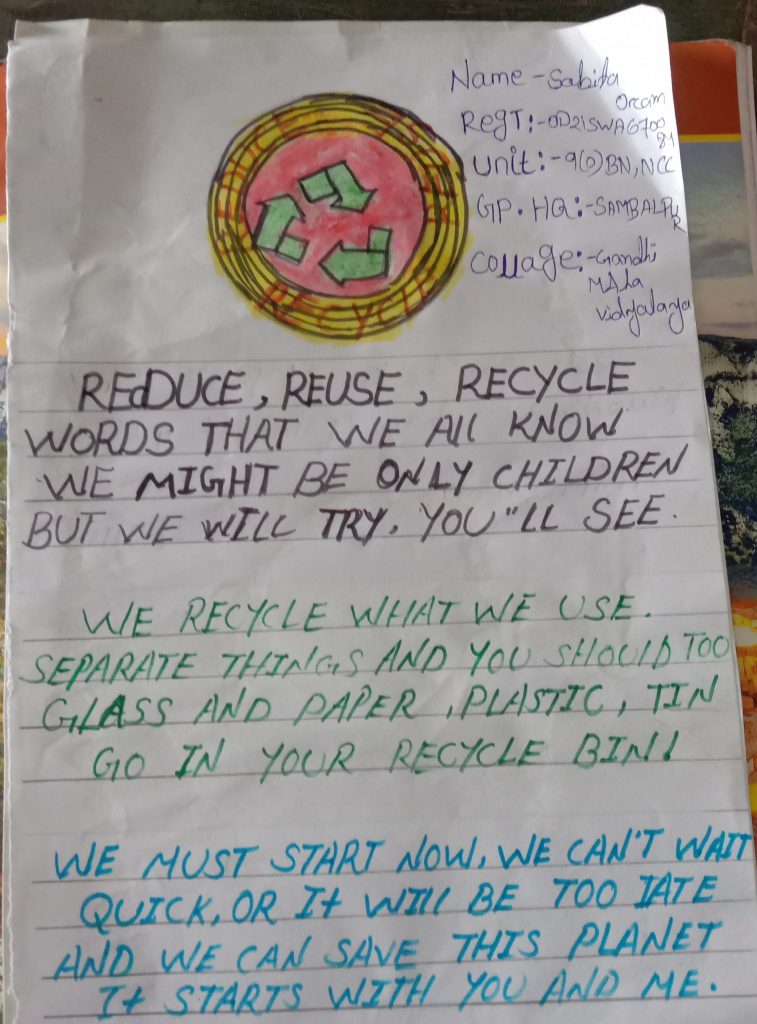 REDUCE REUSE RECYCLE
Name - Sabita
Oram
RegT:- OD21SWA6700
81
Unit:- 9(O) BN, NCC
GP. HQ:- SAMBALPU
R
Collage:- Gandhi
MAha
vidyalaya
REdDUCE, REUSE, RECYCLE
WORDS THAT WE All KNOW
WE MIGHT BE ONLY CHILDREN
BUT WE WILL TRY, YOU"LL SEE.
WE RECYCLE WHAT WE USE.
SEPARATE THINGS AND YOU SHOULD TOO
GLASS AND PAPER, PLASTIC, TIN
GO IN YOUR RECYCLE BIN!
WE MUST START NOW, WE CAN'T WAIT
QUICK, OR It WIll BE TOO lATE
AND WE CAN SAVE THIS PLANET
It STARTS WITH YOU AND ME.